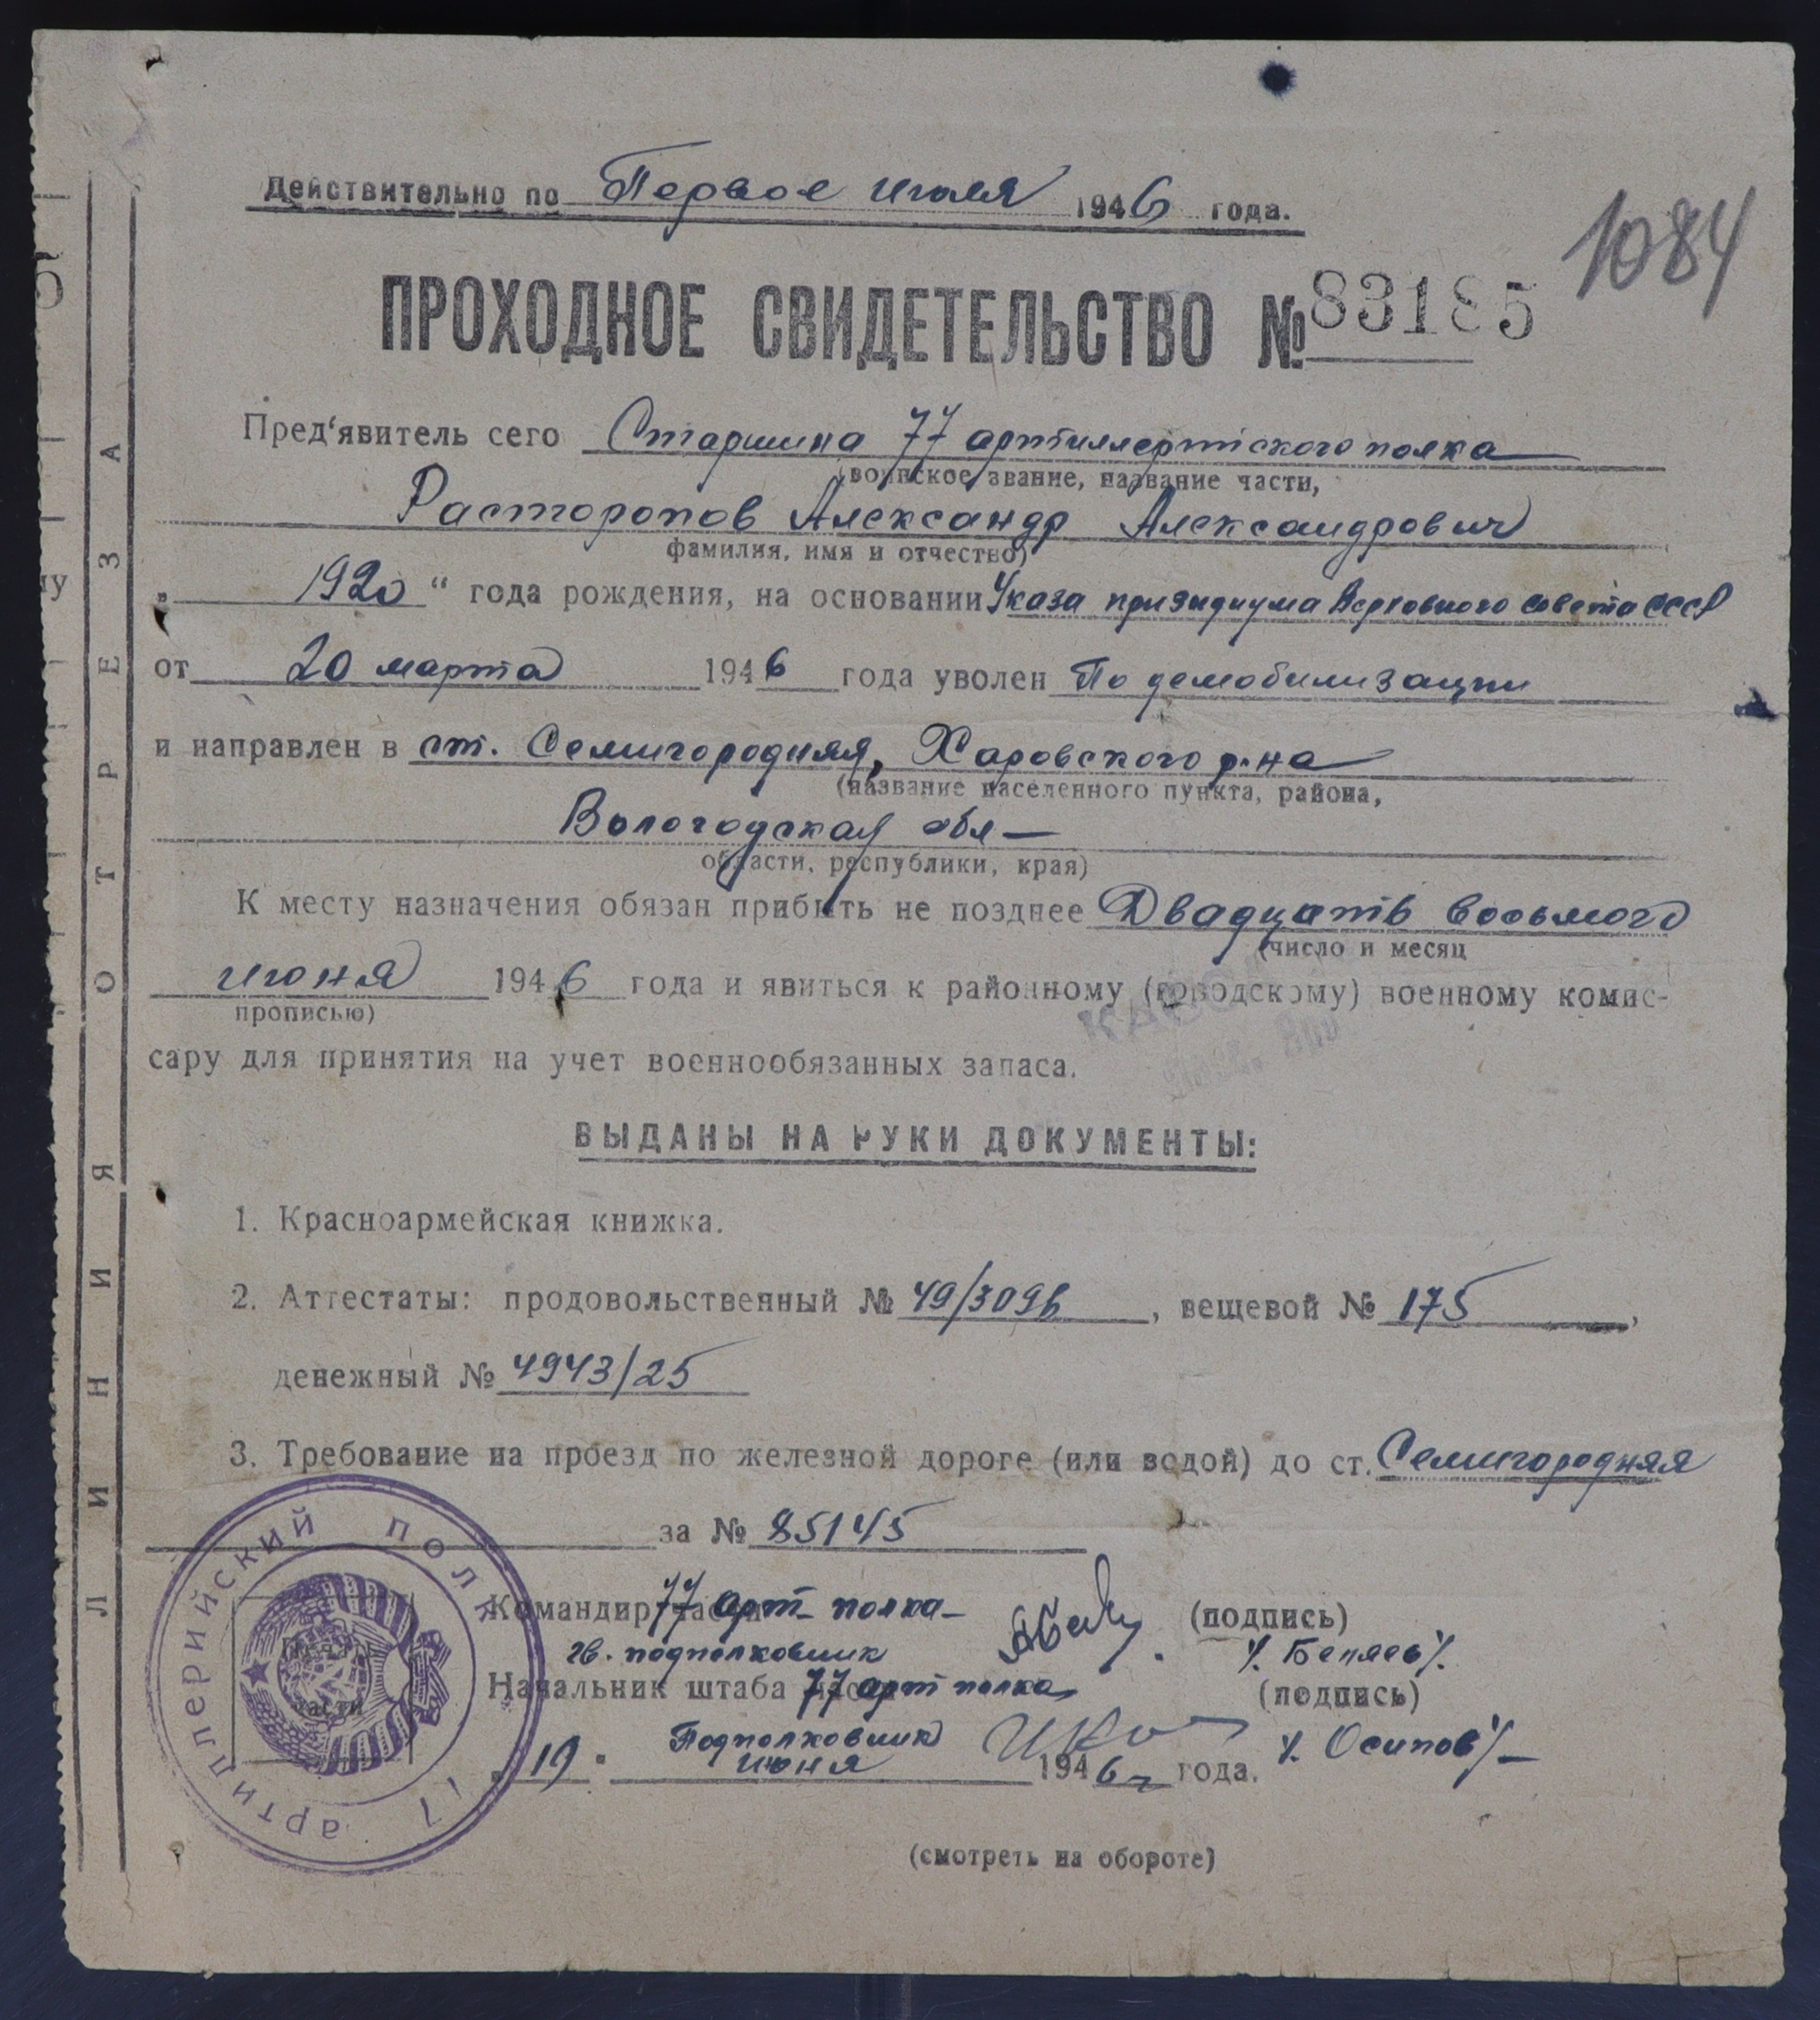 Действительно по Первое июля 1946 года.
1084
ПРОХОДНОЕ СВИДЕТЕЛЬСТВО № 83185
Пред'явитель сего Старшина 77 артиллерийского полка
(воинское звание, название части,
Расторопов Александр Александрович
фамилия, имя и отчество)
„ 1920 “ года рождения, на основании Указа призидиума Верховного совета СССР
от 20 марта 1946 года уволен По демобилизации
и направлен в ст. Семигородняя, Харовского р-на
(название населенного пункта, района,
Вологодская обл —
области, республики, края)
К месту назначения обязан прибыть не позднее Двадцать восьмого
(число и месяц
июня 1946 года и явиться к районному (городскому) военному комис-
прописью)
сару для принятия на учет военнообязанных запаса.
ВЫДАНЫ НА РУКИ ДОКУМЕНТЫ:
1. Красноармейская книжка.
2. Аттестаты: продовольственный № 49/3096, вещевой № 175,
денежный № 4943/25
3. Требование на проезд по железной дороге (или водой) до ст. Семигородняя
за № 85145
Командир части 77 арт- полка- (подпись)
гв. подполковник /. Беляев /.
Начальник штаба части 77 арт полка (подпись)
Подполковник /. Осипов /-
„ 19 " июня 1946 г года.
(смотреть на обороте)
77 артиллерийский полк
Печать
части
ЛИНИЯ ОТРЕЗА
5
му